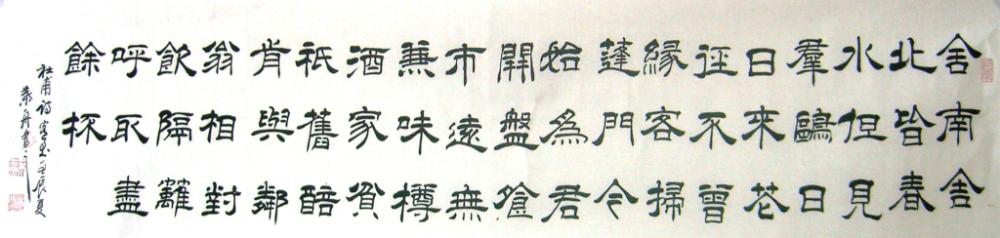 舍南舍
北皆春
水但見
羣鷗日
日來花
徑不曾
緣客掃
蓬門今
始爲君
開盤飧
市遠無
兼味樽
酒家貧
衹舊醅
肯與鄰
翁相對
飲隔籬
呼取盡
餘杯
杜甫詩客至壬辰夏